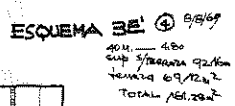 ESQUEMA 3E' ④ 8/8/69
40 M. — 4.80
SUP S/TERRAZA 92,16m
TERRAZA 69,12m²
TOTAL 161,28m²